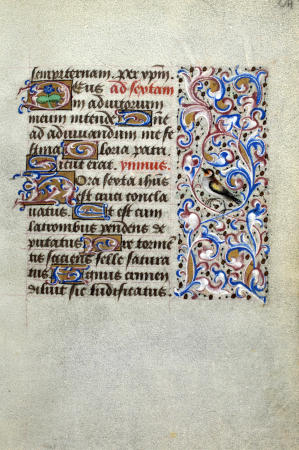 sempiternam. per xpm̄.
Deus ad sextam
in adiutorium
meum intende Dn̄e
ad adiuuandum me fe
stina Gloria patri
Sicut erat. ymnus.
Hora sexta ihūs
est cruci concla
uatus Et est cum
latronibus pendens de
putatus Pre torme
tis sciens felle satura
tus Agnus crimen
diluit sic ludificatus